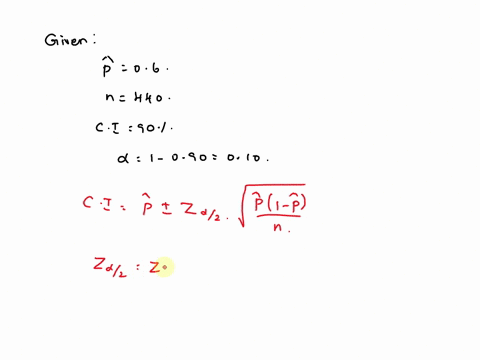 Given:
p̂ = 0.6.
n = 440.
C.I = 90%.
α = 1 - 0.90 = 0.10.
C.I = p̂ ± Z α/2 . √ p̂(1-p̂) / n.
Z α/2 = Z.